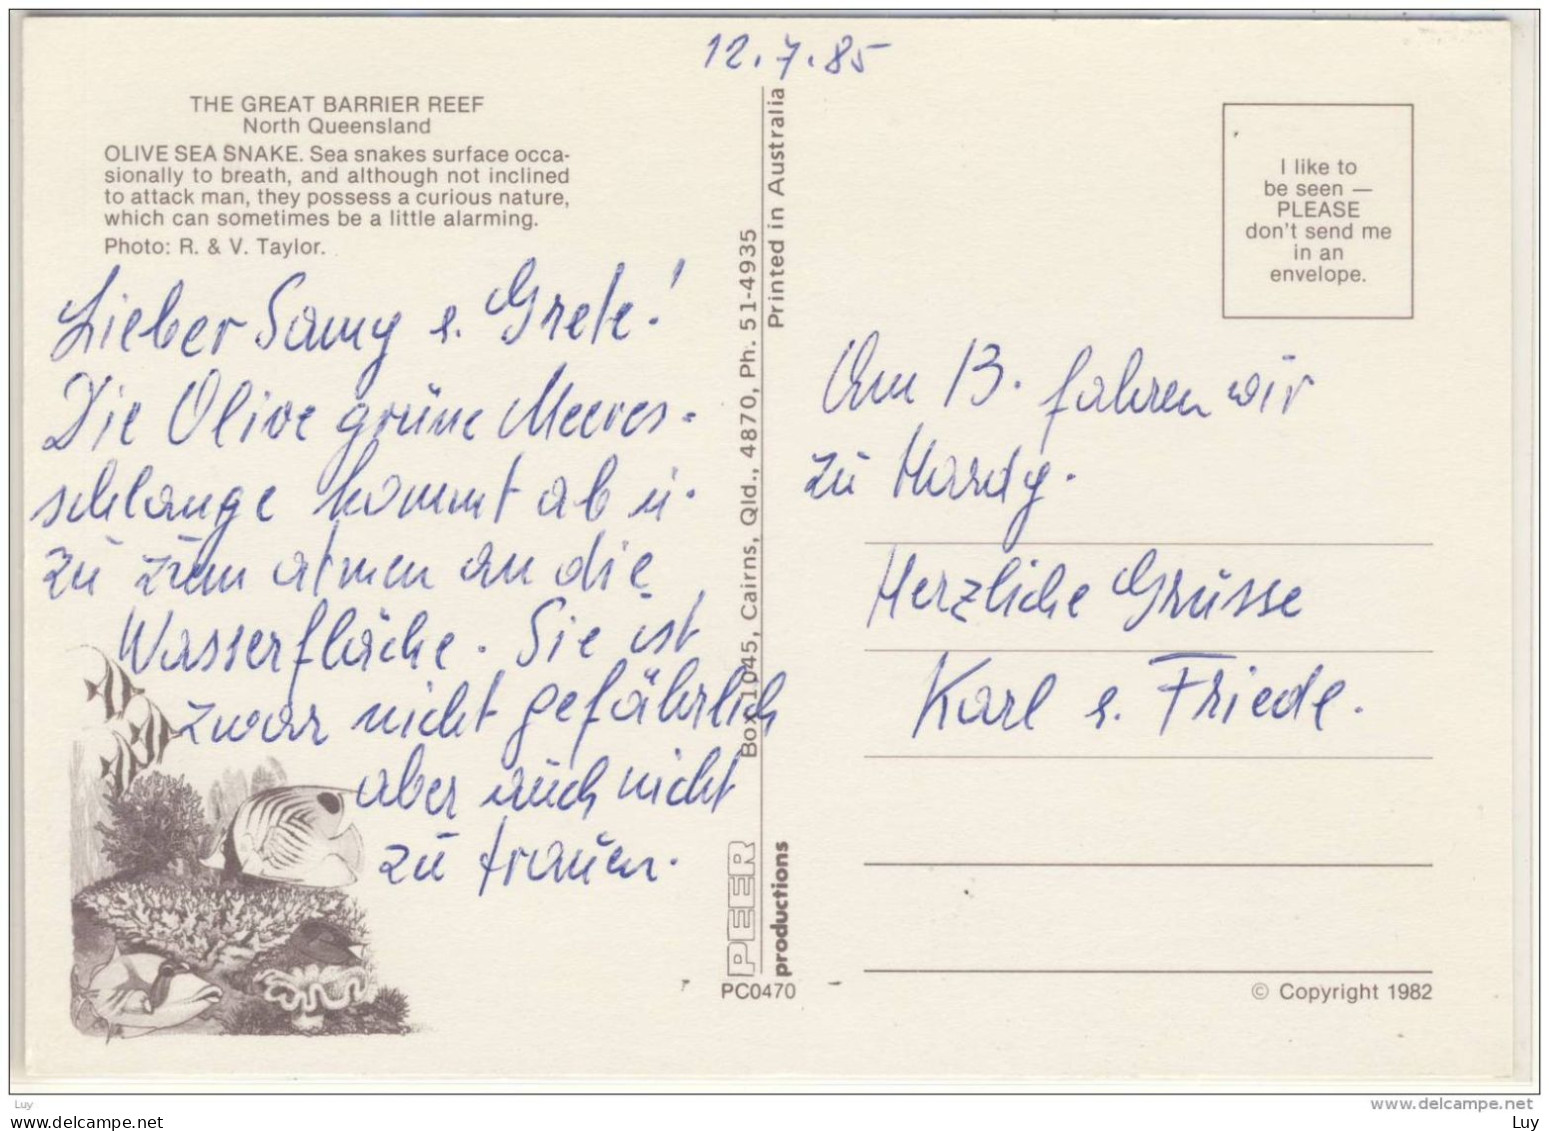 12.7.85
THE GREAT BARRIER REEF
North Queensland
OLIVE SEA SNAKE. Sea snakes surface occa-
sionally to breath, and although not inclined
to attack man, they possess a curious nature,
which can sometimes be a little alarming.
Photo: R. & V. Taylor.
Lieber Samy u. Grete!
Die Olive grüne Meeres-
schlange kommt ab u.
zu zum atmen an die
Wasserfläche. Sie ist
zwar nicht gefährlich
aber auch nicht
zu trauen.
Printed in Australia
Box 1045, Cairns, Qld., 4870, Ph. 51-4935
PEER
productions
PC0470
I like to
be seen —
PLEASE
don't send me
in an
envelope.
Am 13. fahren wir
zu Hardy.
Herzliche Grüsse
Karl u. Friedl.
© Copyright 1982
Luy
www.delcampe.net
www.delcampe.net
Luy